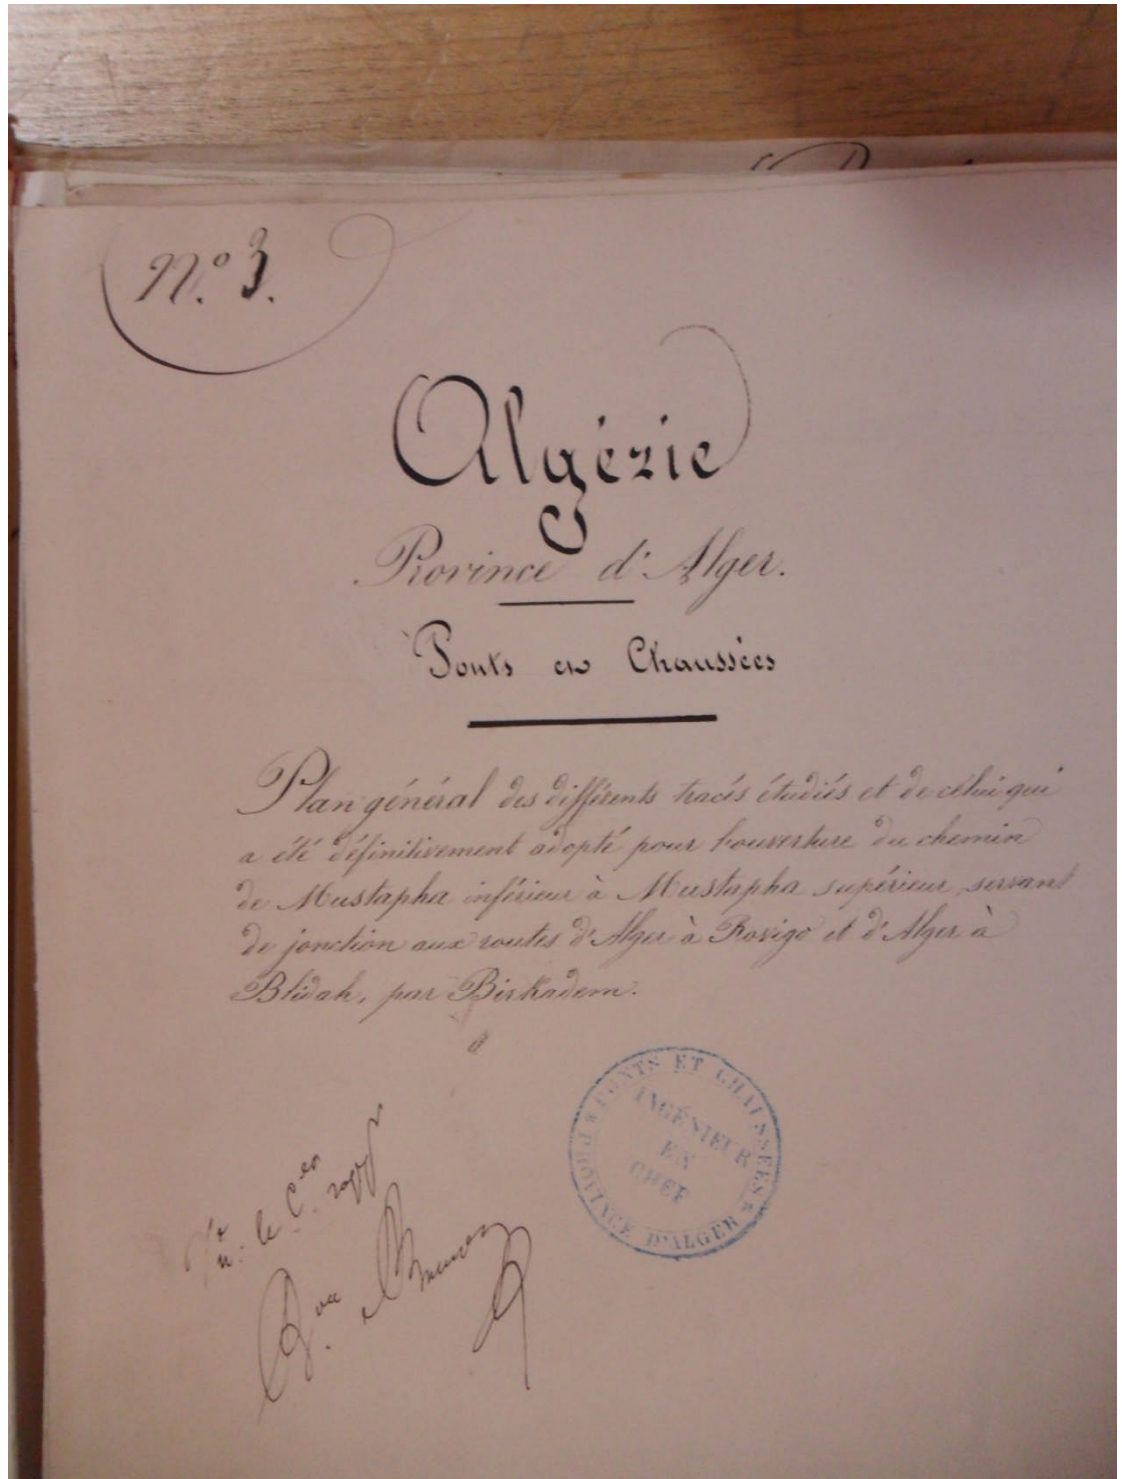 N.º 3.
Algérie
Province d'Alger.
Ponts et Chaussées
Plan général des différents tracés étudiés et de célui qui
a été définitivement adopté pour l'ouverture du chemin
de Mustapha inférieur à Mustapha supérieur servant
de jonction aux routes d'Alger à Rovigo et d'Alger à
Blidah, par Birkadem.
PONTS ET CHAUSSÉES
INGÉNIEUR
EN
CHEF
PROVINCE D'ALGER
le